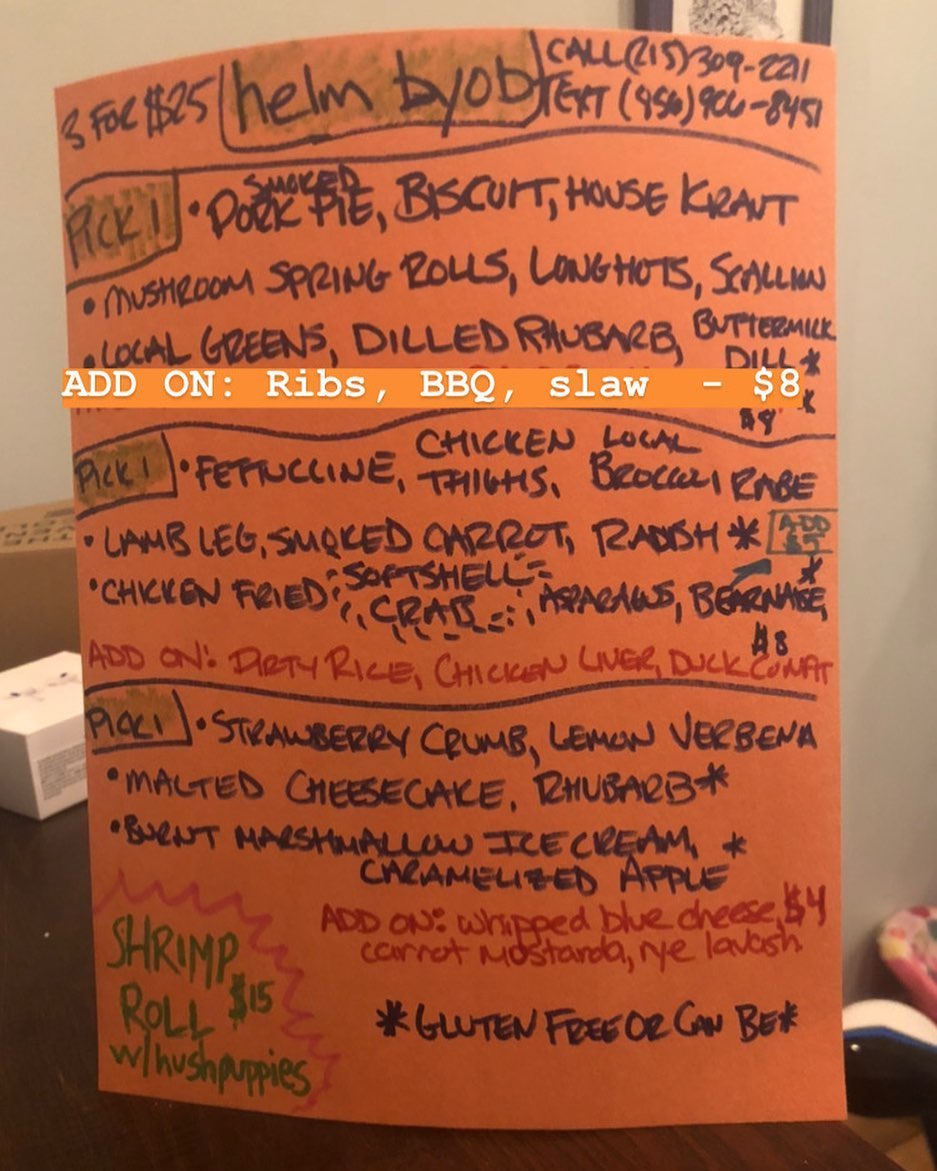 3 FOR $25 helm byob CALL (215) 309-2211
TEXT (856) 906-8451
PICK 1 • SMOKED PORK PIE, BISCUIT, HOUSE KRAUT
• MUSHROOM SPRING ROLLS, LONGHOTS, SCALLION
• LOCAL GREENS, DILLED RHUBARB, BUTTERMILK DILL *
ADD ON: Ribs, BBQ, slaw - $8
$8 *
PICK 1 • FETTUCCINE, CHICKEN THIGHS, LOCAL BROCCOLI RABE
• LAMB LEG, SMOKED CARROT, RADISH * ADD $5
• CHICKEN FRIED SOFTSHELL CRAB, ASPARAGUS, BEARNAISE, *
ADD ON: DIRTY RICE, CHICKEN LIVER, DUCK CONFIT $8
PICK 1 • STRAWBERRY CRUMB, LEMON VERBENA
• MALTED CHEESECAKE, RHUBARB *
• BURNT MARSHMALLOW ICE CREAM, *
CARAMELIZED APPLE
ADD ON: whipped blue cheese, $4
carrot mostarda, rye lavash
SHRIMP
ROLL $15
w/hushpuppies
* GLUTEN FREE OR CAN BE *